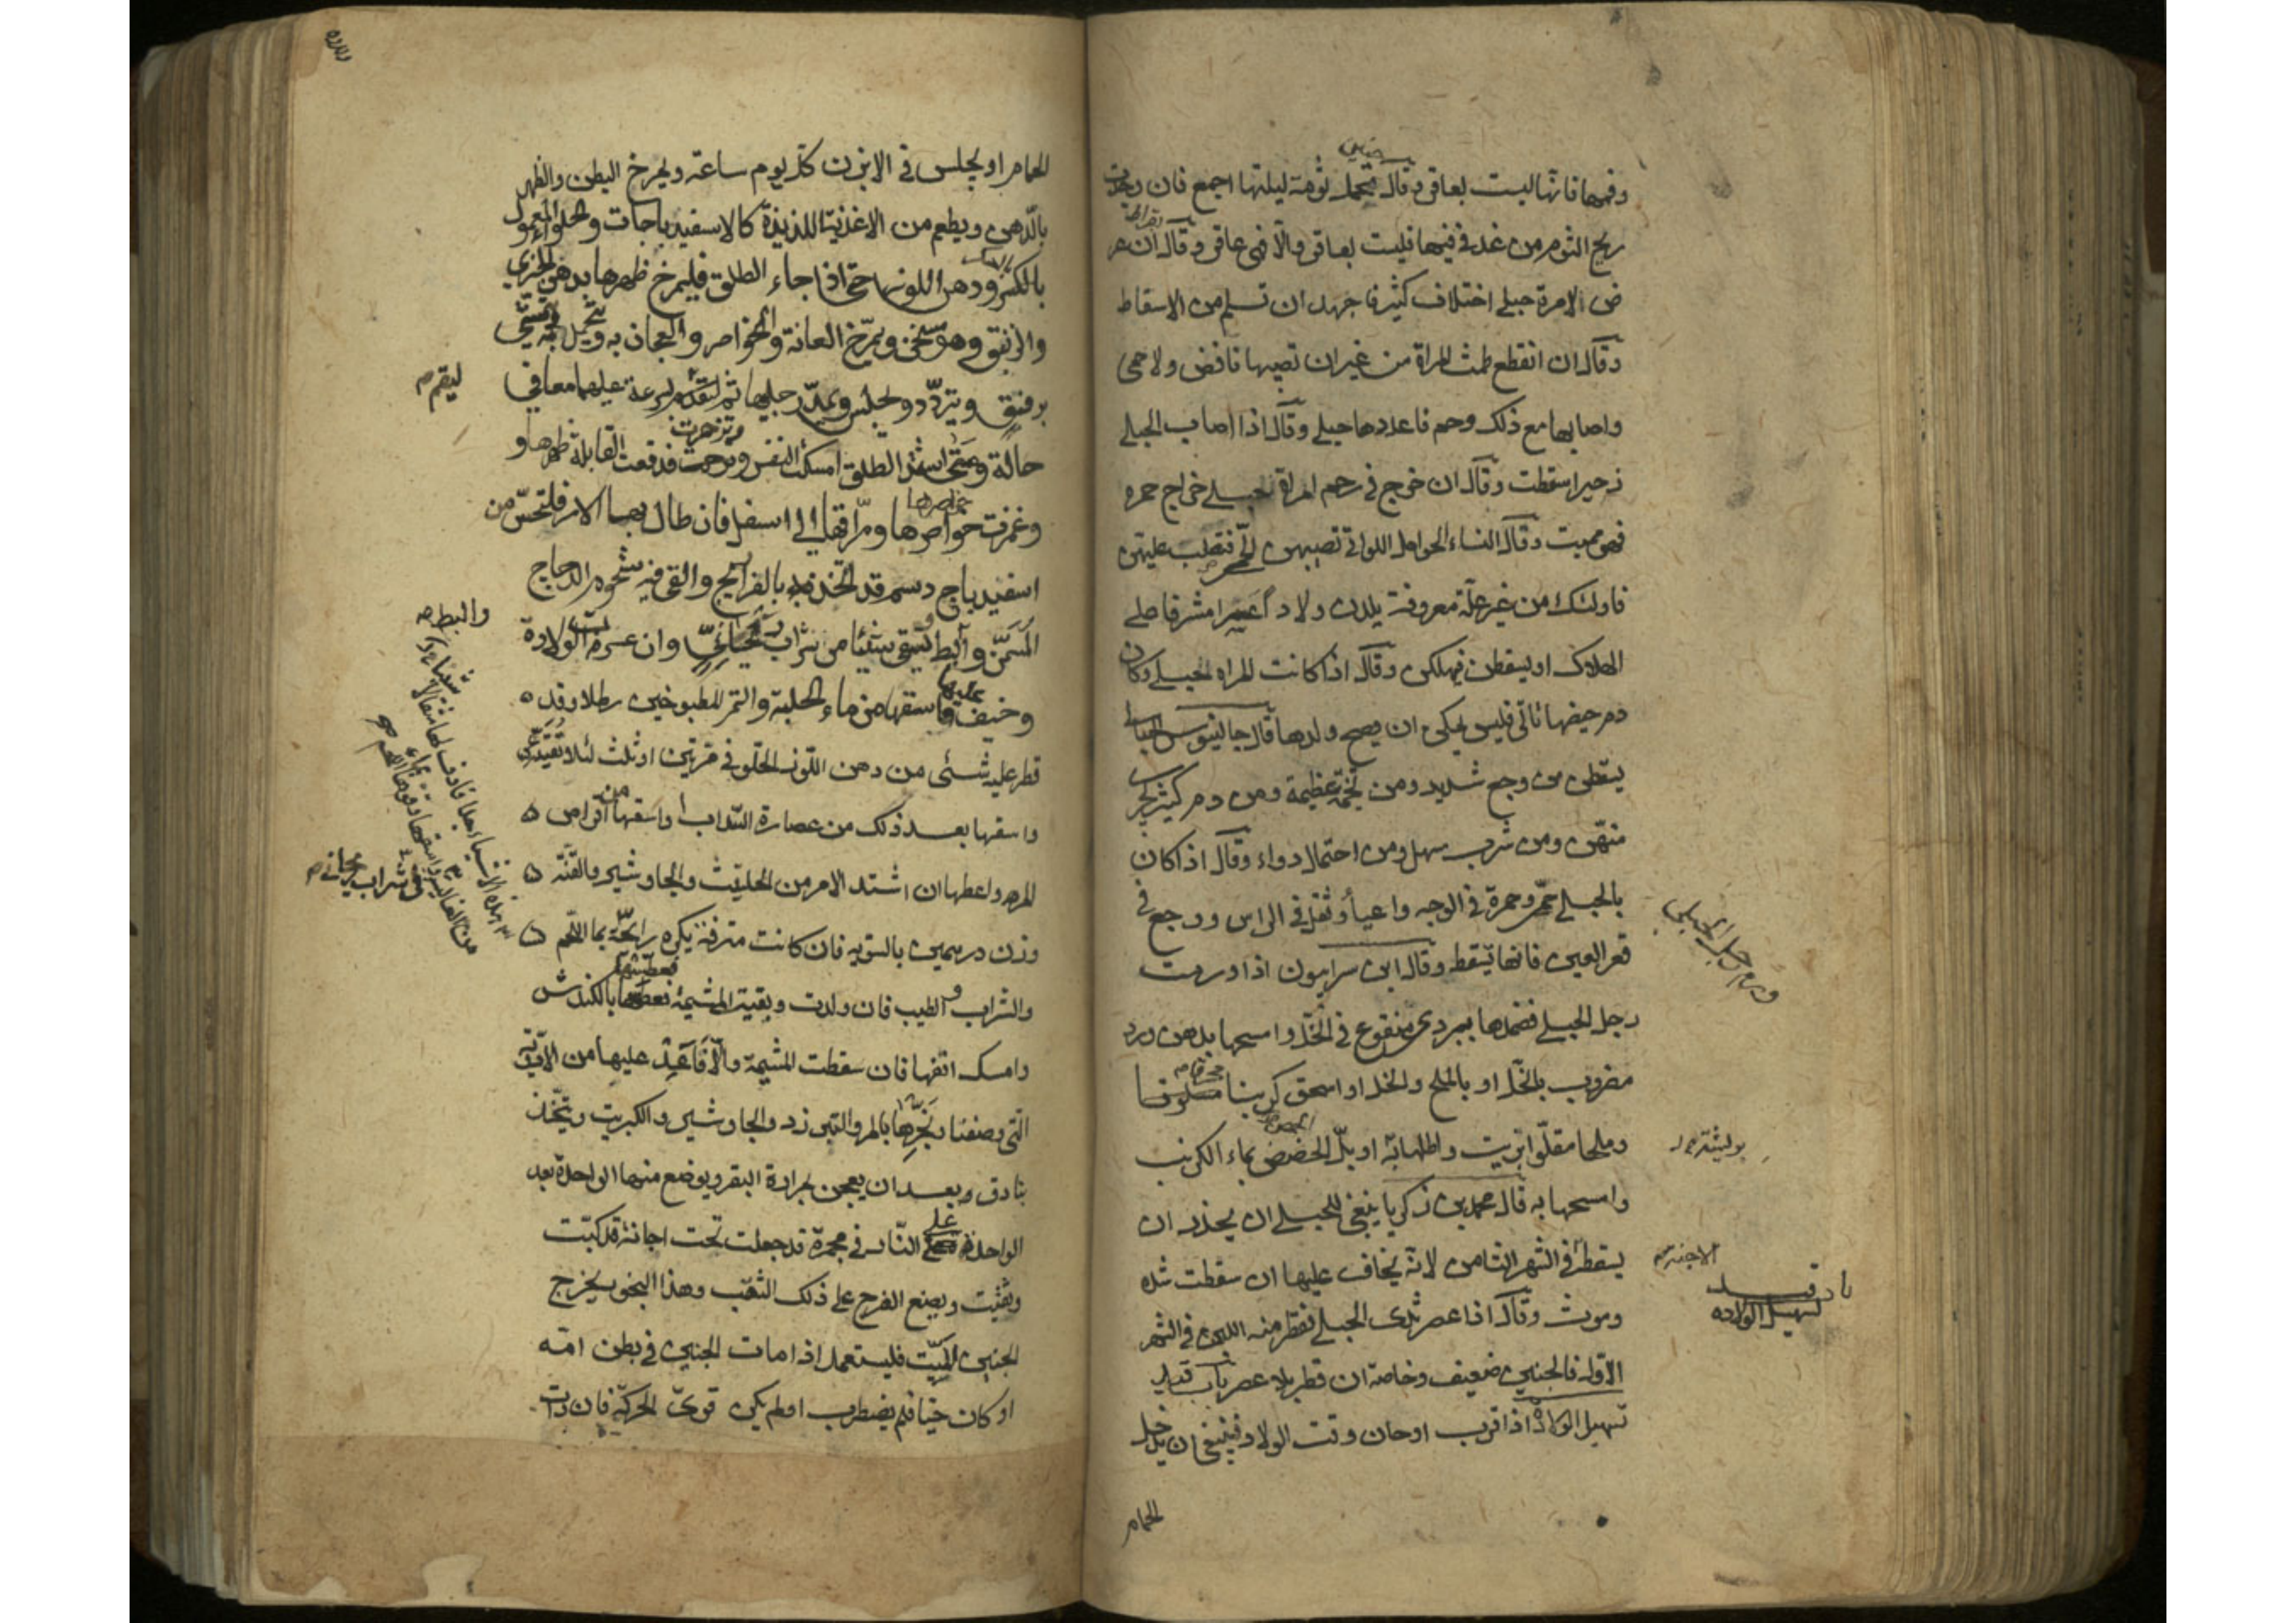 وفمها فانها ليست بعاقر وقال تتحمل ثومة ليلتها اجمع فان وجدت
ريح الثوم من غد في فيها فليست بعاقر والا فهى عاقر وقال بقراط ان عر
ض لامرة حبلى اختلاف كثير فاجهد ان تسلم من الاسقاط
وقال ان انقطع طمث المراة من غير ان تصيبها نافض ولا حمى
واصابها مع ذلك وحم فاعددها حبلى وقال اذا اصاب الحبلى
زحير اسقطت وقال ان خرج في رحم امراة حبلى خراج حمره
فهو مميت وقال النساء الحوامل اللواتى تصيبهن الحمى فتصلب عليهن
فاولئك من غير علة معروفة يلدن ولادا عسرا مشرفا على
الهلاك او يسقطن فيهلكن وقال اذا كانت المراه الحبلى وكان
دم حيضها تاتى فليس يمكن ان يصح ولدها قال جالينوس الحبالى
يسقطن من وجع شديد ومن تخمة عظيمة ومن دم كثير يجرى
منهن ومن شرب مسهل ومن احتمال دواء وقال اذا كان
بالحبلى حمى وحمرة في الوجه واعياء وثقل في الراس ووجع في
قعر العين فانها تسقط وقال ابن سرابيون اذا ورمت
رجل الحبلى فضمدها ببردى منقوع في الخل وامسحها بدهن ورد
مضروب بالخل او بالملح والخل او اسحق كرنبا محرقا
وملحا مقلوا بزيت واطلها به او بل الحضض بماء الكرنب
وامسحها به قال محمد بن زكريا ينبغى للحبلى ان يحذر ان
يسقط في الشهر الثامن لانه يخاف عليها ان سقطت شده
وموت وقال اذا عصر ثدى الحبلى فقطر منه اللبن في الشهر
الاول فالجنين ضعيف وخاصة ان قطر بلا عصر باب
تسهيل الولادة اذا قرب او حان وقت الولاد فينبغى ان يدخل
الحمام
ورم رجل الحبلى
الاجنة
باب
تسهيل الولاده
الحمام او يجلس في الابزن كل يوم ساعة ويمرخ البطن والظهر
بالدهن ويطعم من الاغذية اللذيذة كالاسفيدباجات والحلواء المعمول
بالسكر ودهن اللوز حتى اذا جاء الطلق فليمرخ ظهرها بدهن الخيرى
والزنبق وهو مسخن ويمرخ العانة والخواصر والعجان به
برفق ويتردد ويجلس ويمد رجليها ثم لتقم بسرعة
حالة ومتى اشتد الطلق امسكت النفس وتزحرت فدفعت القابلة ظهرها و
وغمزت خواصرها ومراقها الى اسفل فان طال بها الامر فلتحس من
اسفيدباج دسم قد اتخذ بالفراريج والقى فيه شحوم الدجاج
المسمن والبط وتسقى شيئا من شراب ريحانى وان عسرت الولادة
وخيف عليها فاسقها من ماء الحلبة والتمر المطبوخين رطلا وقد
قطر عليه شئ من دهن اللوز الحلو في مرتين او ثلث لئلا
واسقها بعد ذلك من عصارة السداب واسقها من اقراص
المر واعطها ان اشتد الامر من الحلتيت والجاوشير والقنة
وزن درهمين بالسويه فان كانت مترفة يكره رائحة بماء اللحم
والشراب والطيب فان ولدت وبقيت المشيمة فعطسها بالكندش
وامسك انفها فان سقطت المشيمة والا فاعد عليها من الادوية
التى وصفنا وبخرها بالمر والقنة والجاوشير والكبريت ويتخذ
بنادق وبعد ان يعجن بمرارة البقر ويوضع منها الواحدة بعد
الواحدة على النار في مجمرة قد جعلت تحت اجانة قد كبت
وثقبت ويضع الفرج على ذلك الثقب وهذا البخور يخرج
الجنين الميت فليستعمل اذا مات الجنين في بطن امه
او كان حيا فلم يضطرب او لم يكن قوى الحركة فان
ليقم
والبط
في شراب ريحانى